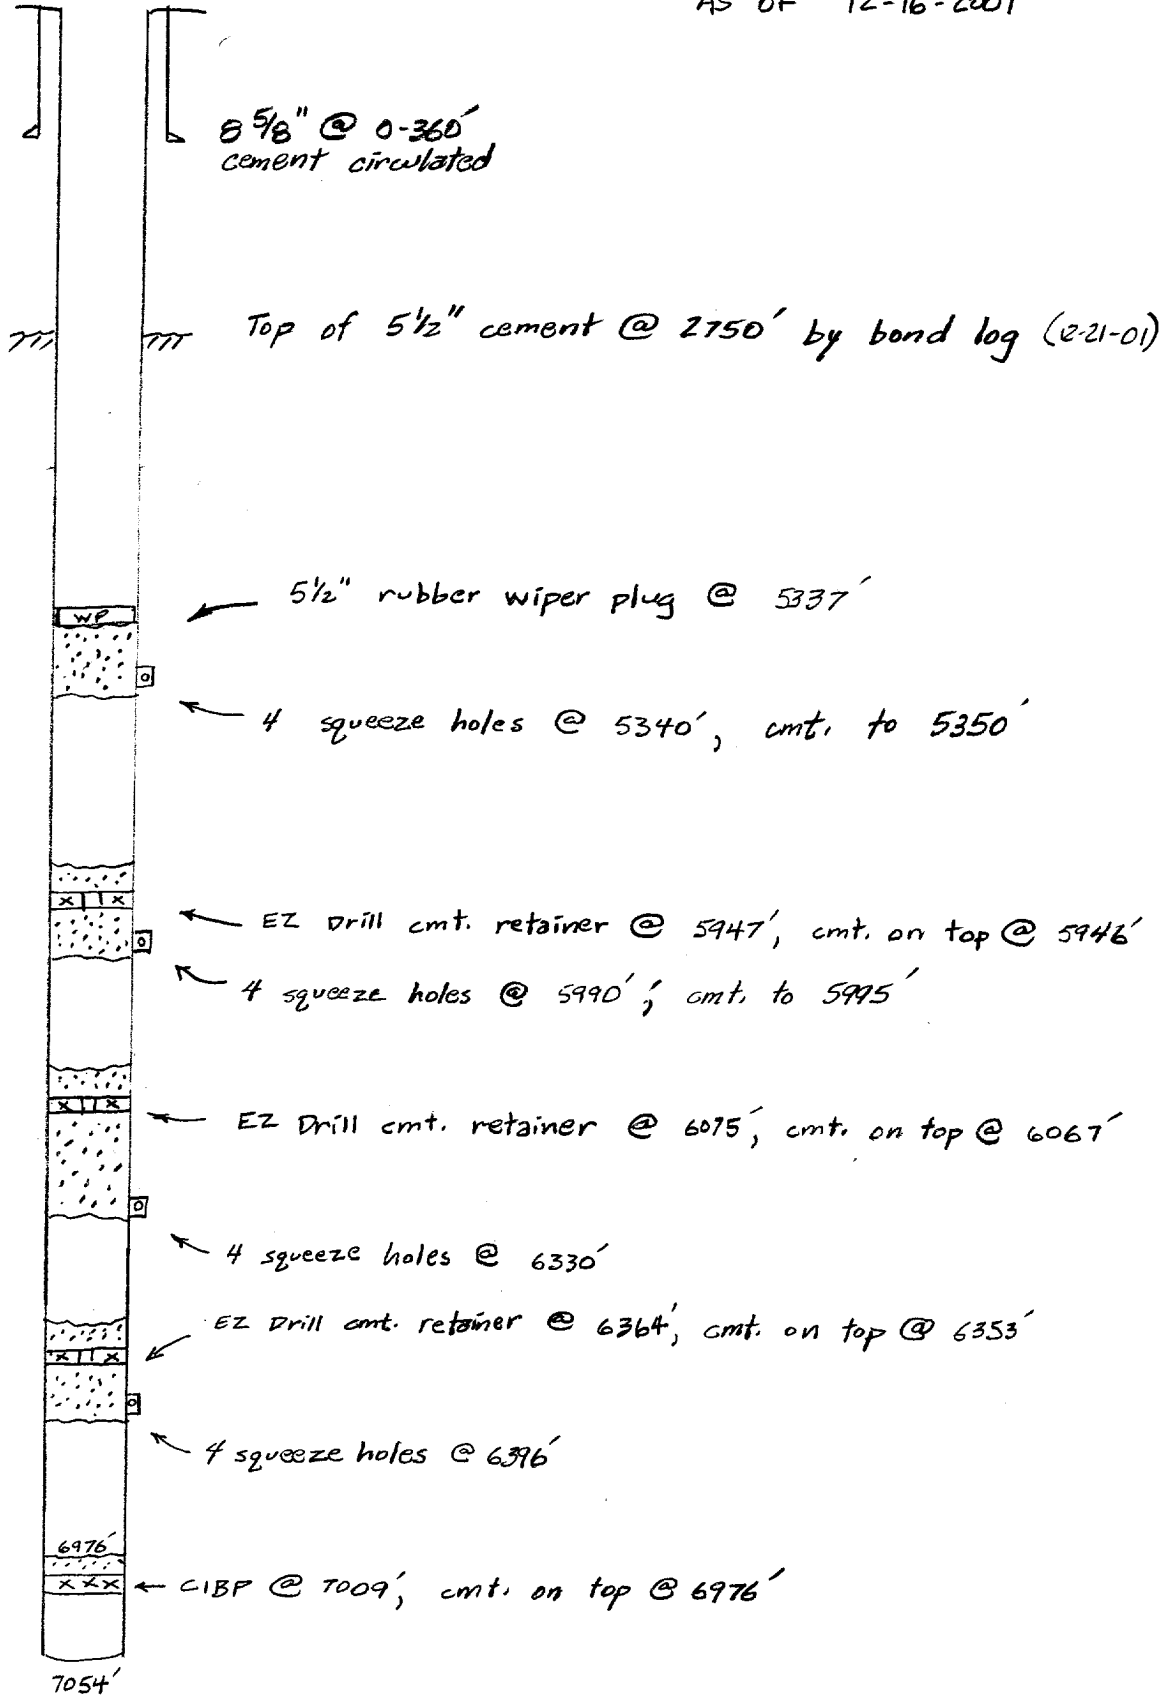 AS OF 12-16-2001
8 5/8" @ 0-360'
cement circulated
Top of 5 1/2" cement @ 2750' by bond log (2-21-01)
5 1/2" rubber wiper plug @ 5337'
WP
4 squeeze holes @ 5340', cmt. to 5350'
x x
EZ Drill cmt. retainer @ 5947', cmt. on top @ 5946'
4 squeeze holes @ 5990'; cmt. to 5995'
x x
EZ Drill cmt. retainer @ 6075', cmt. on top @ 6067'
4 squeeze holes @ 6330'
EZ Drill cmt. retainer @ 6364', cmt. on top @ 6353'
x x
4 squeeze holes @ 6396'
6976'
x x x CIBP @ 7009', cmt. on top @ 6976'
7054'